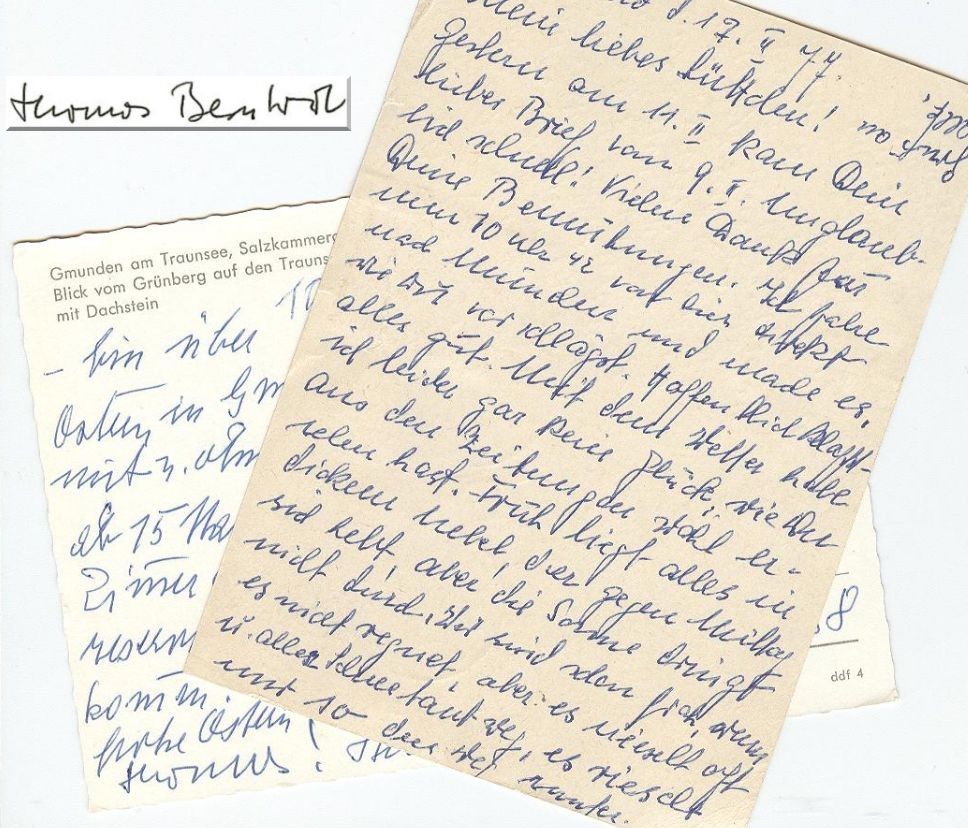 Thomas Bernhard
Gmunden am Traunsee, Salzkammerg
Blick vom Grünberg auf den Trauns
mit Dachstein
- bin über
Ostern in Gm
mit
ab 15
Zimmer
reserv
komm.
frohe Ostern!
Thomas.
8
ddf 4
d. 17. II 77.
Mein liebes
Gestern am 11. II kam Dein
lieber Brief vom 9. II. Unglaub-
lich schnell! Vielen Dank für
Deine Bemühungen. Ich fahre
nun 10 Uhr 42 von hier direkt
nach München und mache es,
wie Du vorschlägst. Hoffentlich klappt
alles gut. Mit dem Wetter habe
ich leider gar kein Glück, wie Du
aus den Zeitungen wohl er-
sehen hast. Früh liegt alles in
dickem Nebel, der gegen Mittag
sich hebt, aber die Sonne dringt
nicht durch. Wir sind schon froh, wenn
es nicht regnet, aber es nieselt oft
u. aller Schnee taut weg, es rieselt
nur so den weg runter.